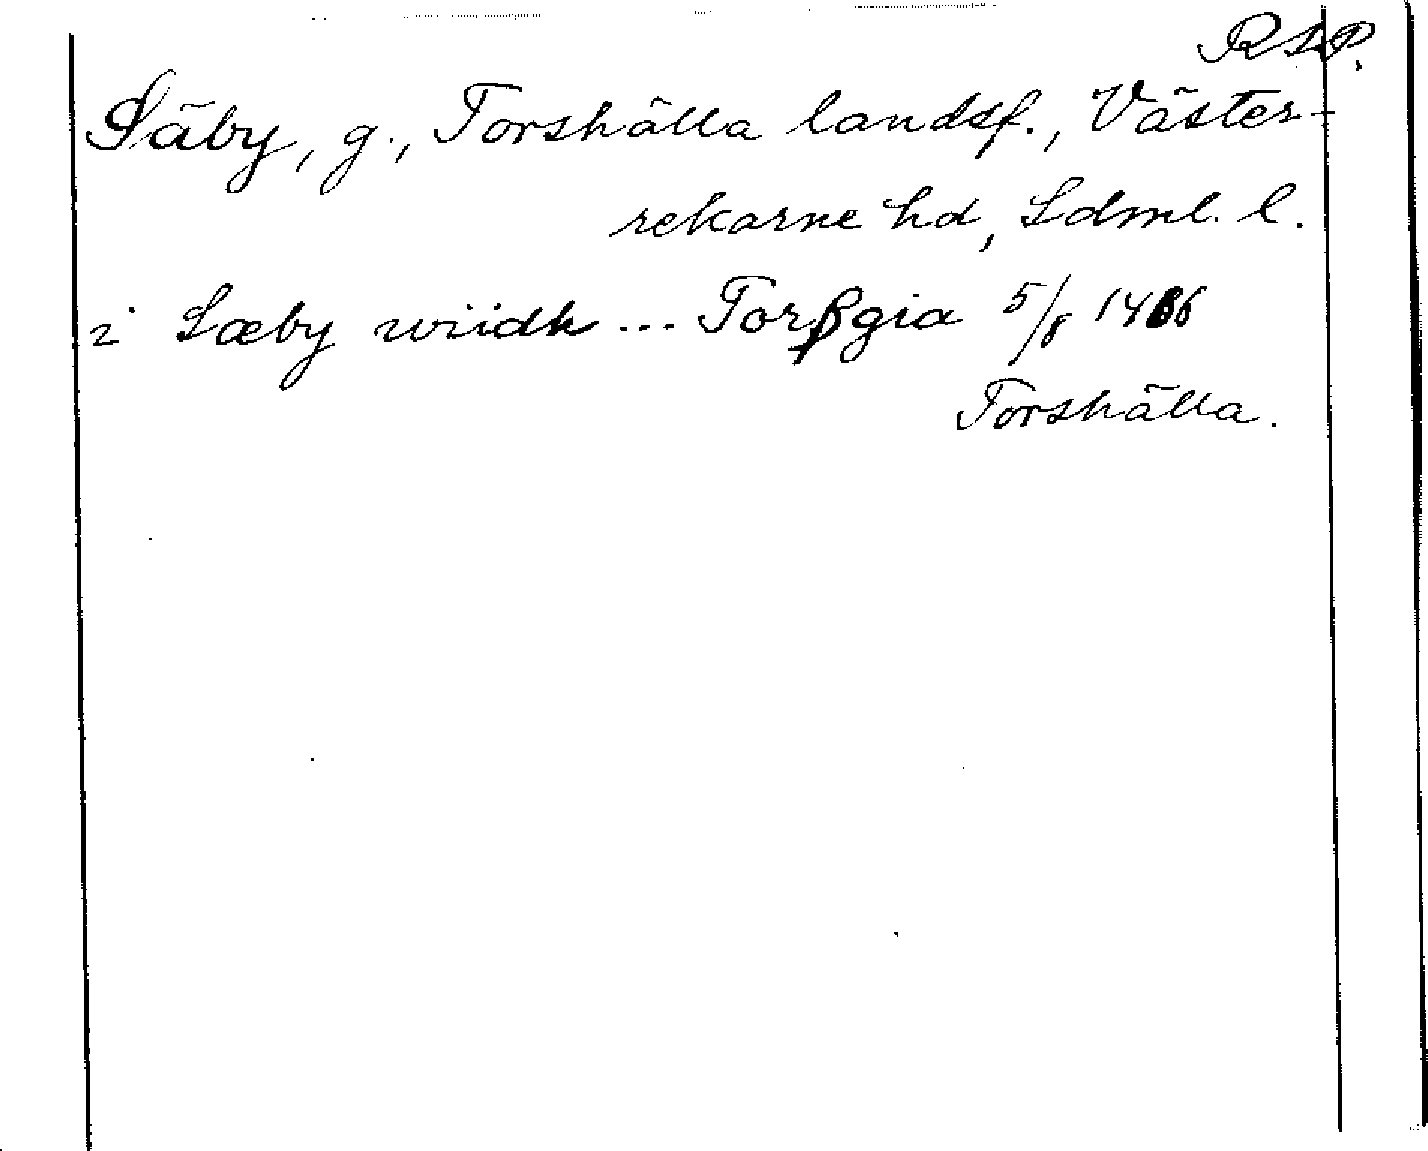 RLP.
Säby, g., Torshälla landsf., Väster-
rekarne hd, Sdml. l.
i Sæby wiidh ... Torßgia 5/8
Torshälla.